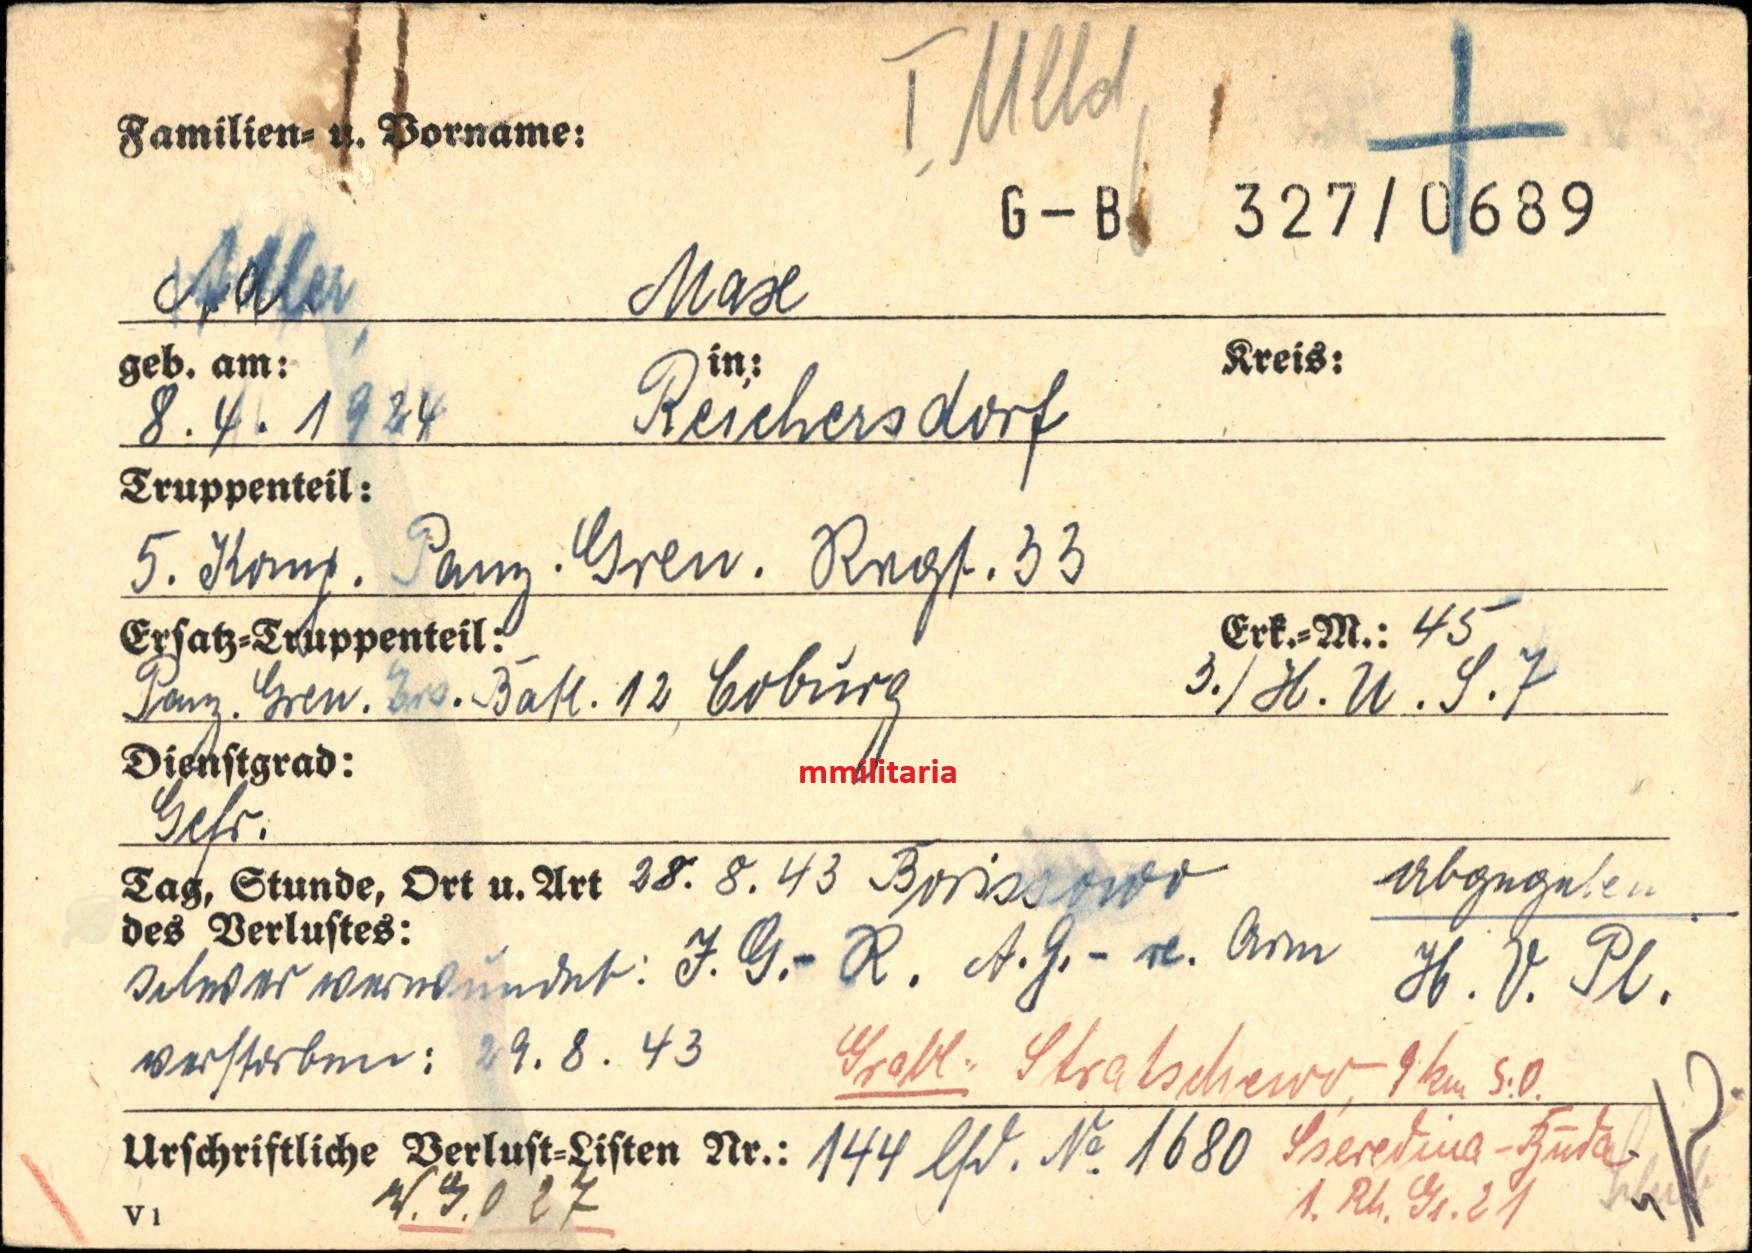 Familien- u. Vorname:
G-B 327/0689
Adler, Max
geb. am: in: Kreis:
8.4.1924 Reichersdorf
Truppenteil:
5. Komp. Panz. Gren. Regt. 33
Ersatz-Truppenteil: Erk.-M.: 45
Panz. Gren. Ers. Batl. 12 Coburg 3./H.U.S.7
Dienstgrad:
Gefr.
Tag, Stunde, Ort u. Art 28.8.43 Borissowo Abgegeben
des Verlustes:
schwer verwundet: J.G.- R. A.G.- re. Arm H.V.Pl.
verstorben: 29.8.43 Grabl: Stratschewo, 9 km s.o.
Urschriftliche Verlust-Listen Nr.: 144 lfd. No. 1680 Sseredina-Buda
1. Rh. Gr. 21
V 1
mmilitaria